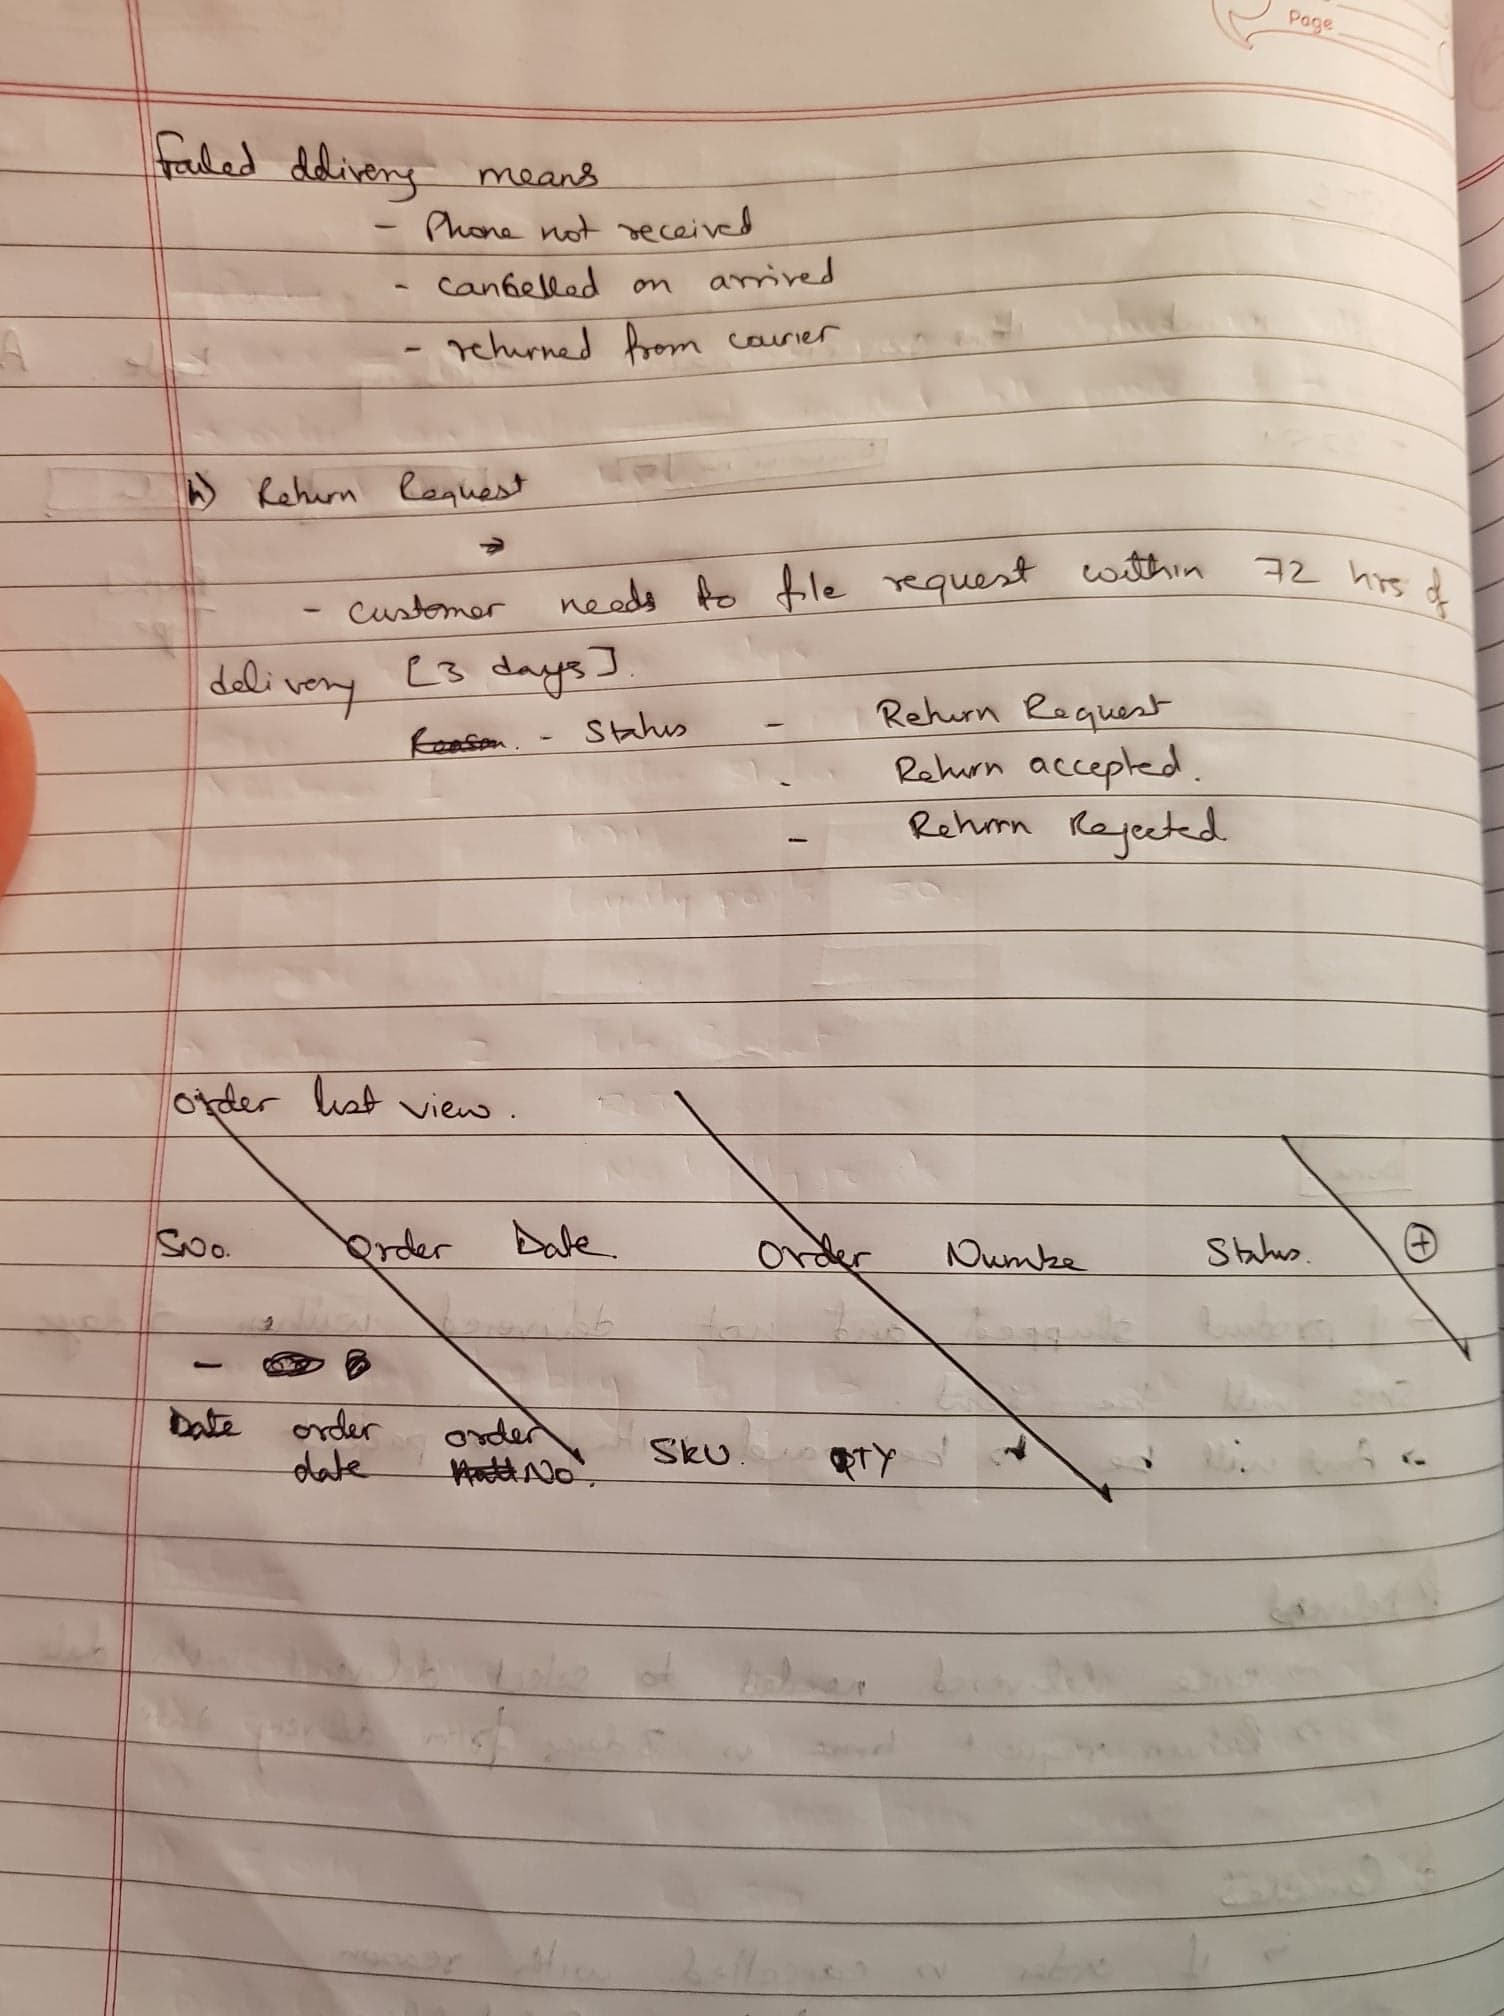 Page
Failed delivery means
- Phone not received
- cancelled on arrived
- returned from courier
h) Return Request
→
- customer needs to file request within 72 hrs of
delivery [3 days].
Reason. - Status - Return Request
- Return accepted.
- Return Rejected
order list view.
SNo. Order Date. Order Numbe Status. +
-
Date order order SKU. QTY
date No.